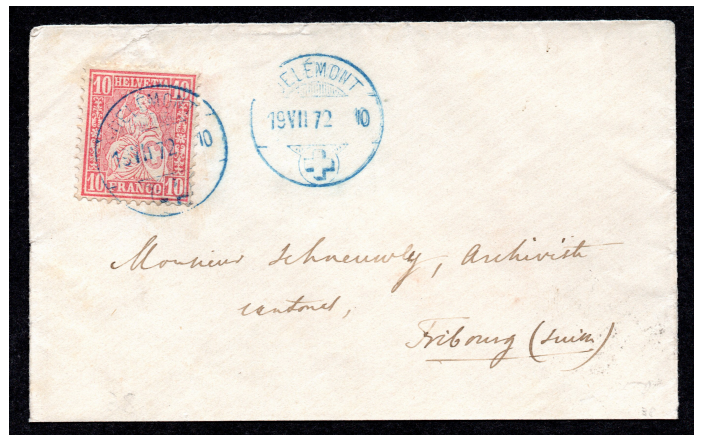 10 HELVETIA 10
10 FRANCO 10
DELÉMONT
19 VII 72 10
DELÉMONT
19 VII 72 10
Monsieur Schneuwly, Archiviste
cantonal,
Fribourg (Suisse)